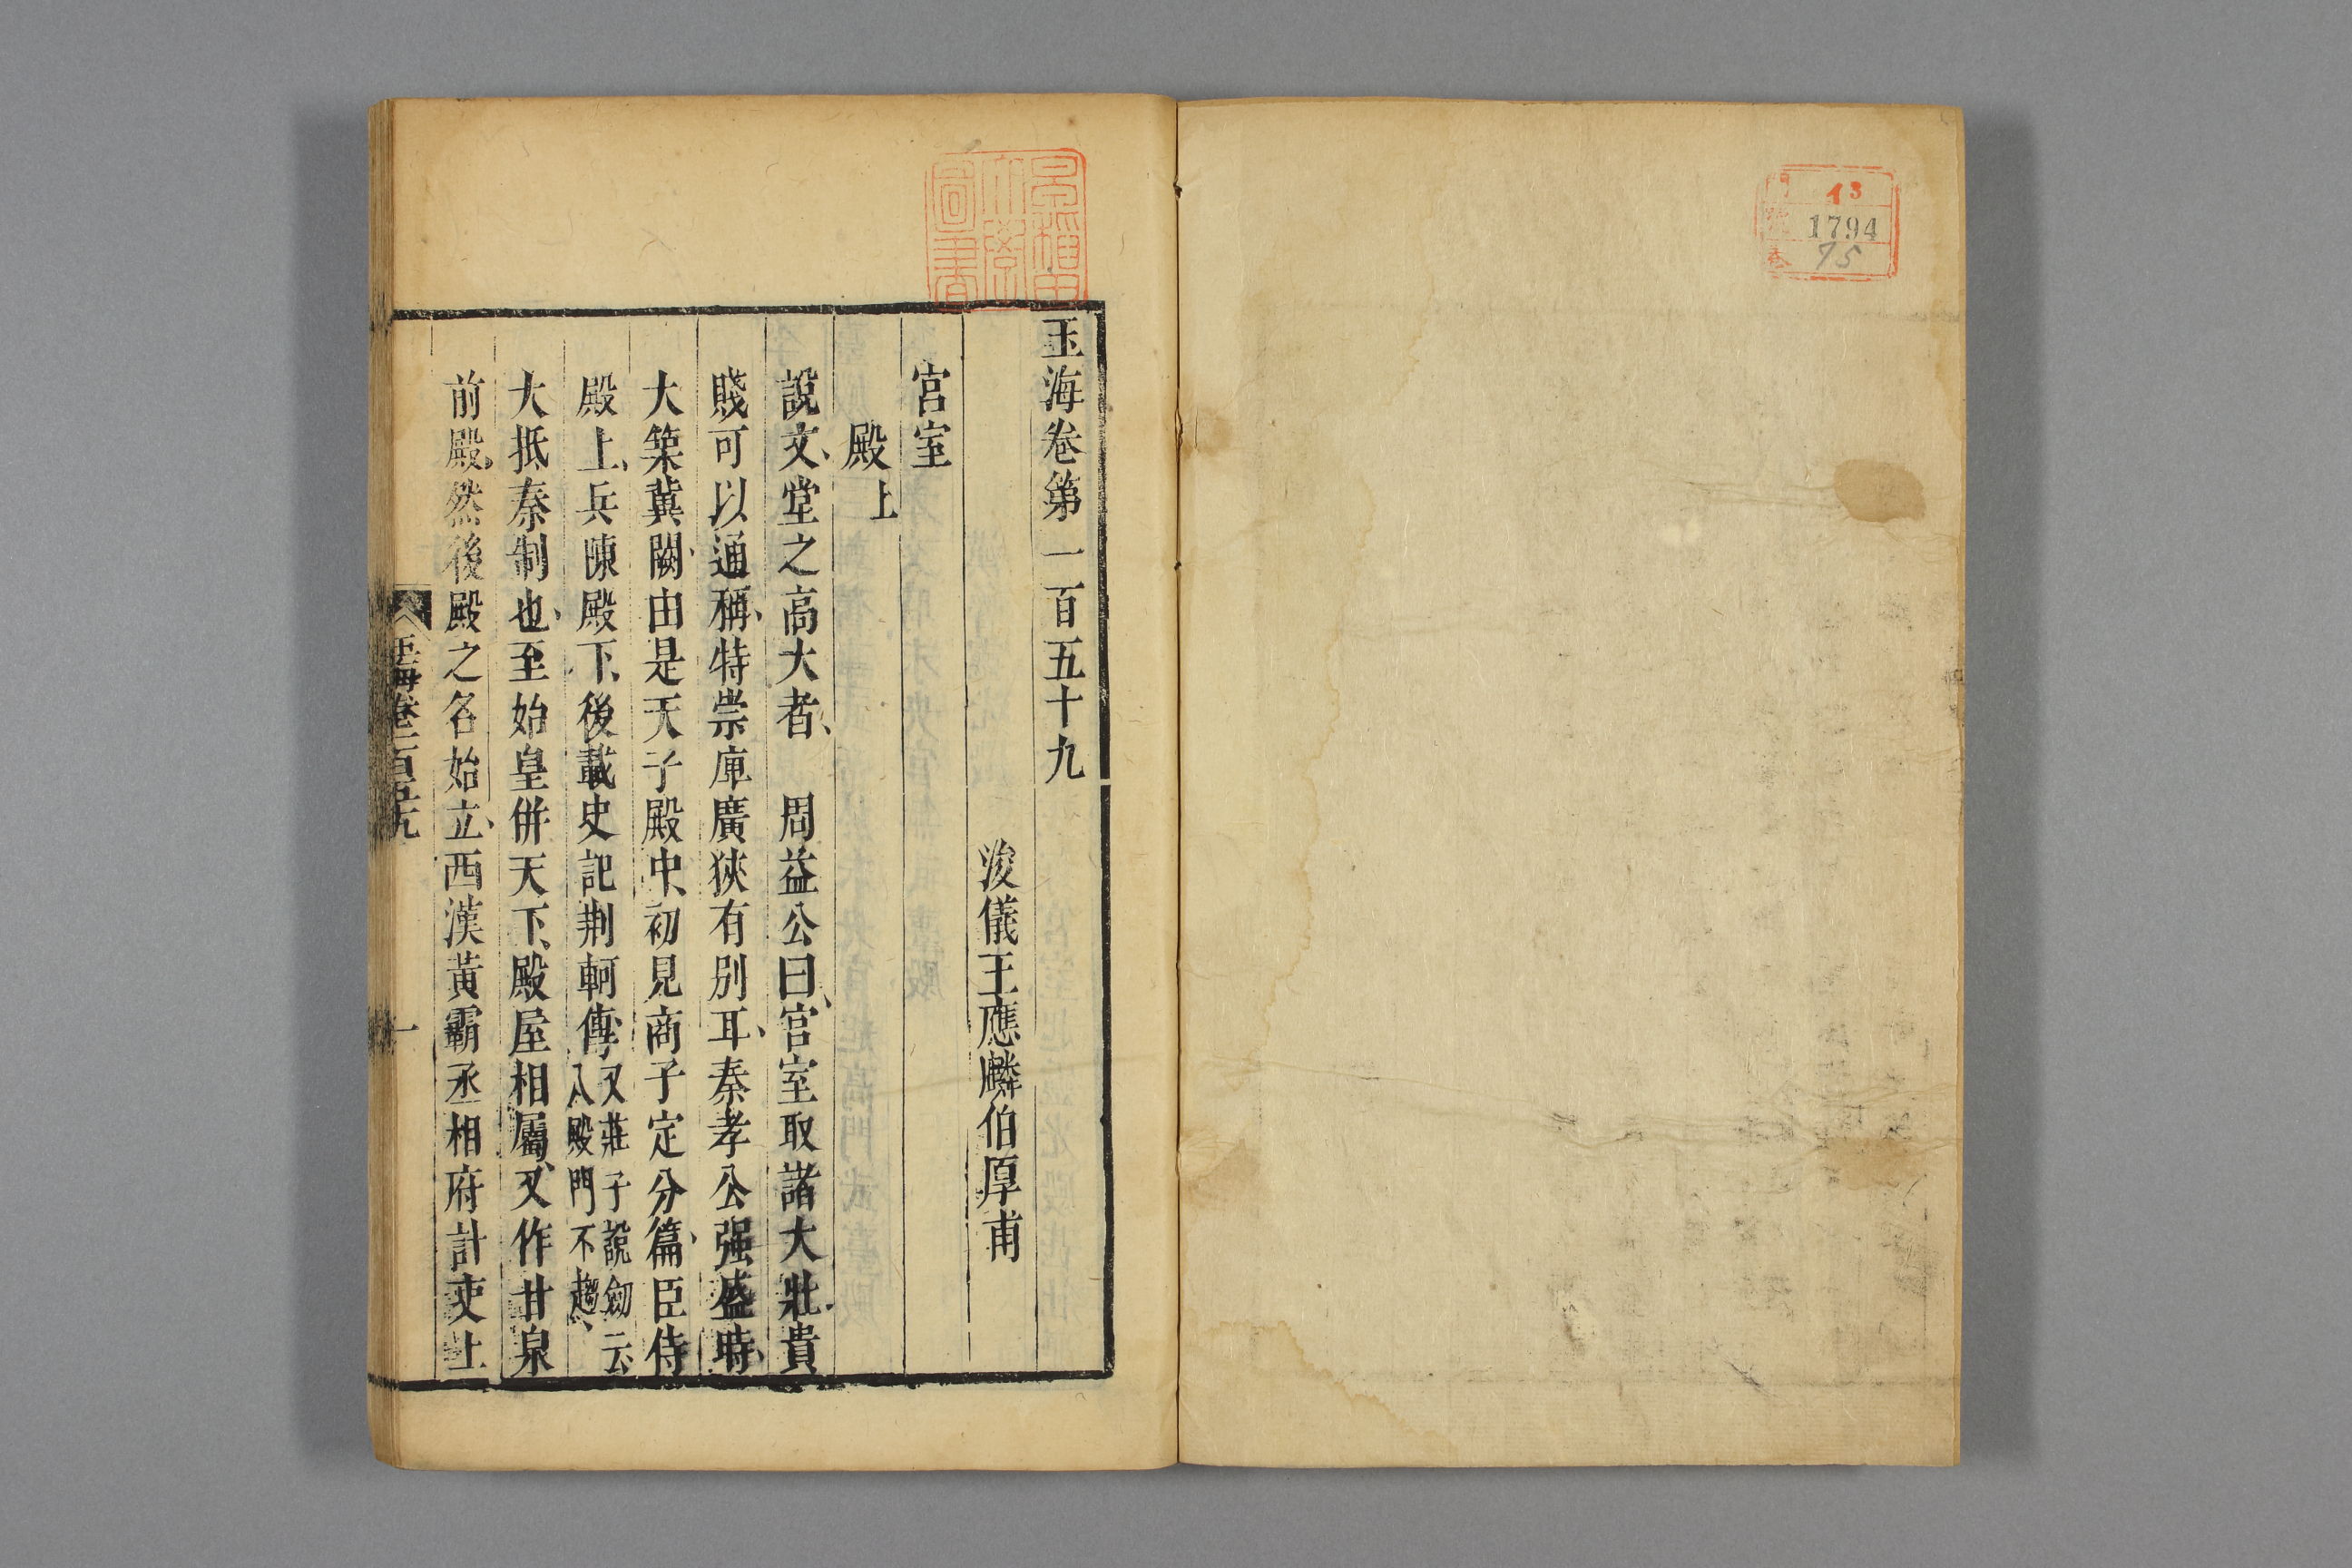 13
1794
75
早稲田
大學
圖書
玉海卷第一百五十九
浚儀王應麟伯厚甫
宮室
殿上
說文、堂之高大者、周益公曰、宮室取諸大壯、貴
賤可以通稱、特崇庳廣狹有別耳、秦孝公强盛時、
大築冀闕、由是天子殿中、初見商子定分篇、臣侍
殿上、兵陳殿下、後載史記荆軻傳、又莊子說劒云、入殿門不趨、
大抵秦制也、至始皇併天下、殿屋相屬、又作甘泉
前殿、然後殿之名始立、西漢黃霸丞相府計吏上
玉海卷一百五十九
一